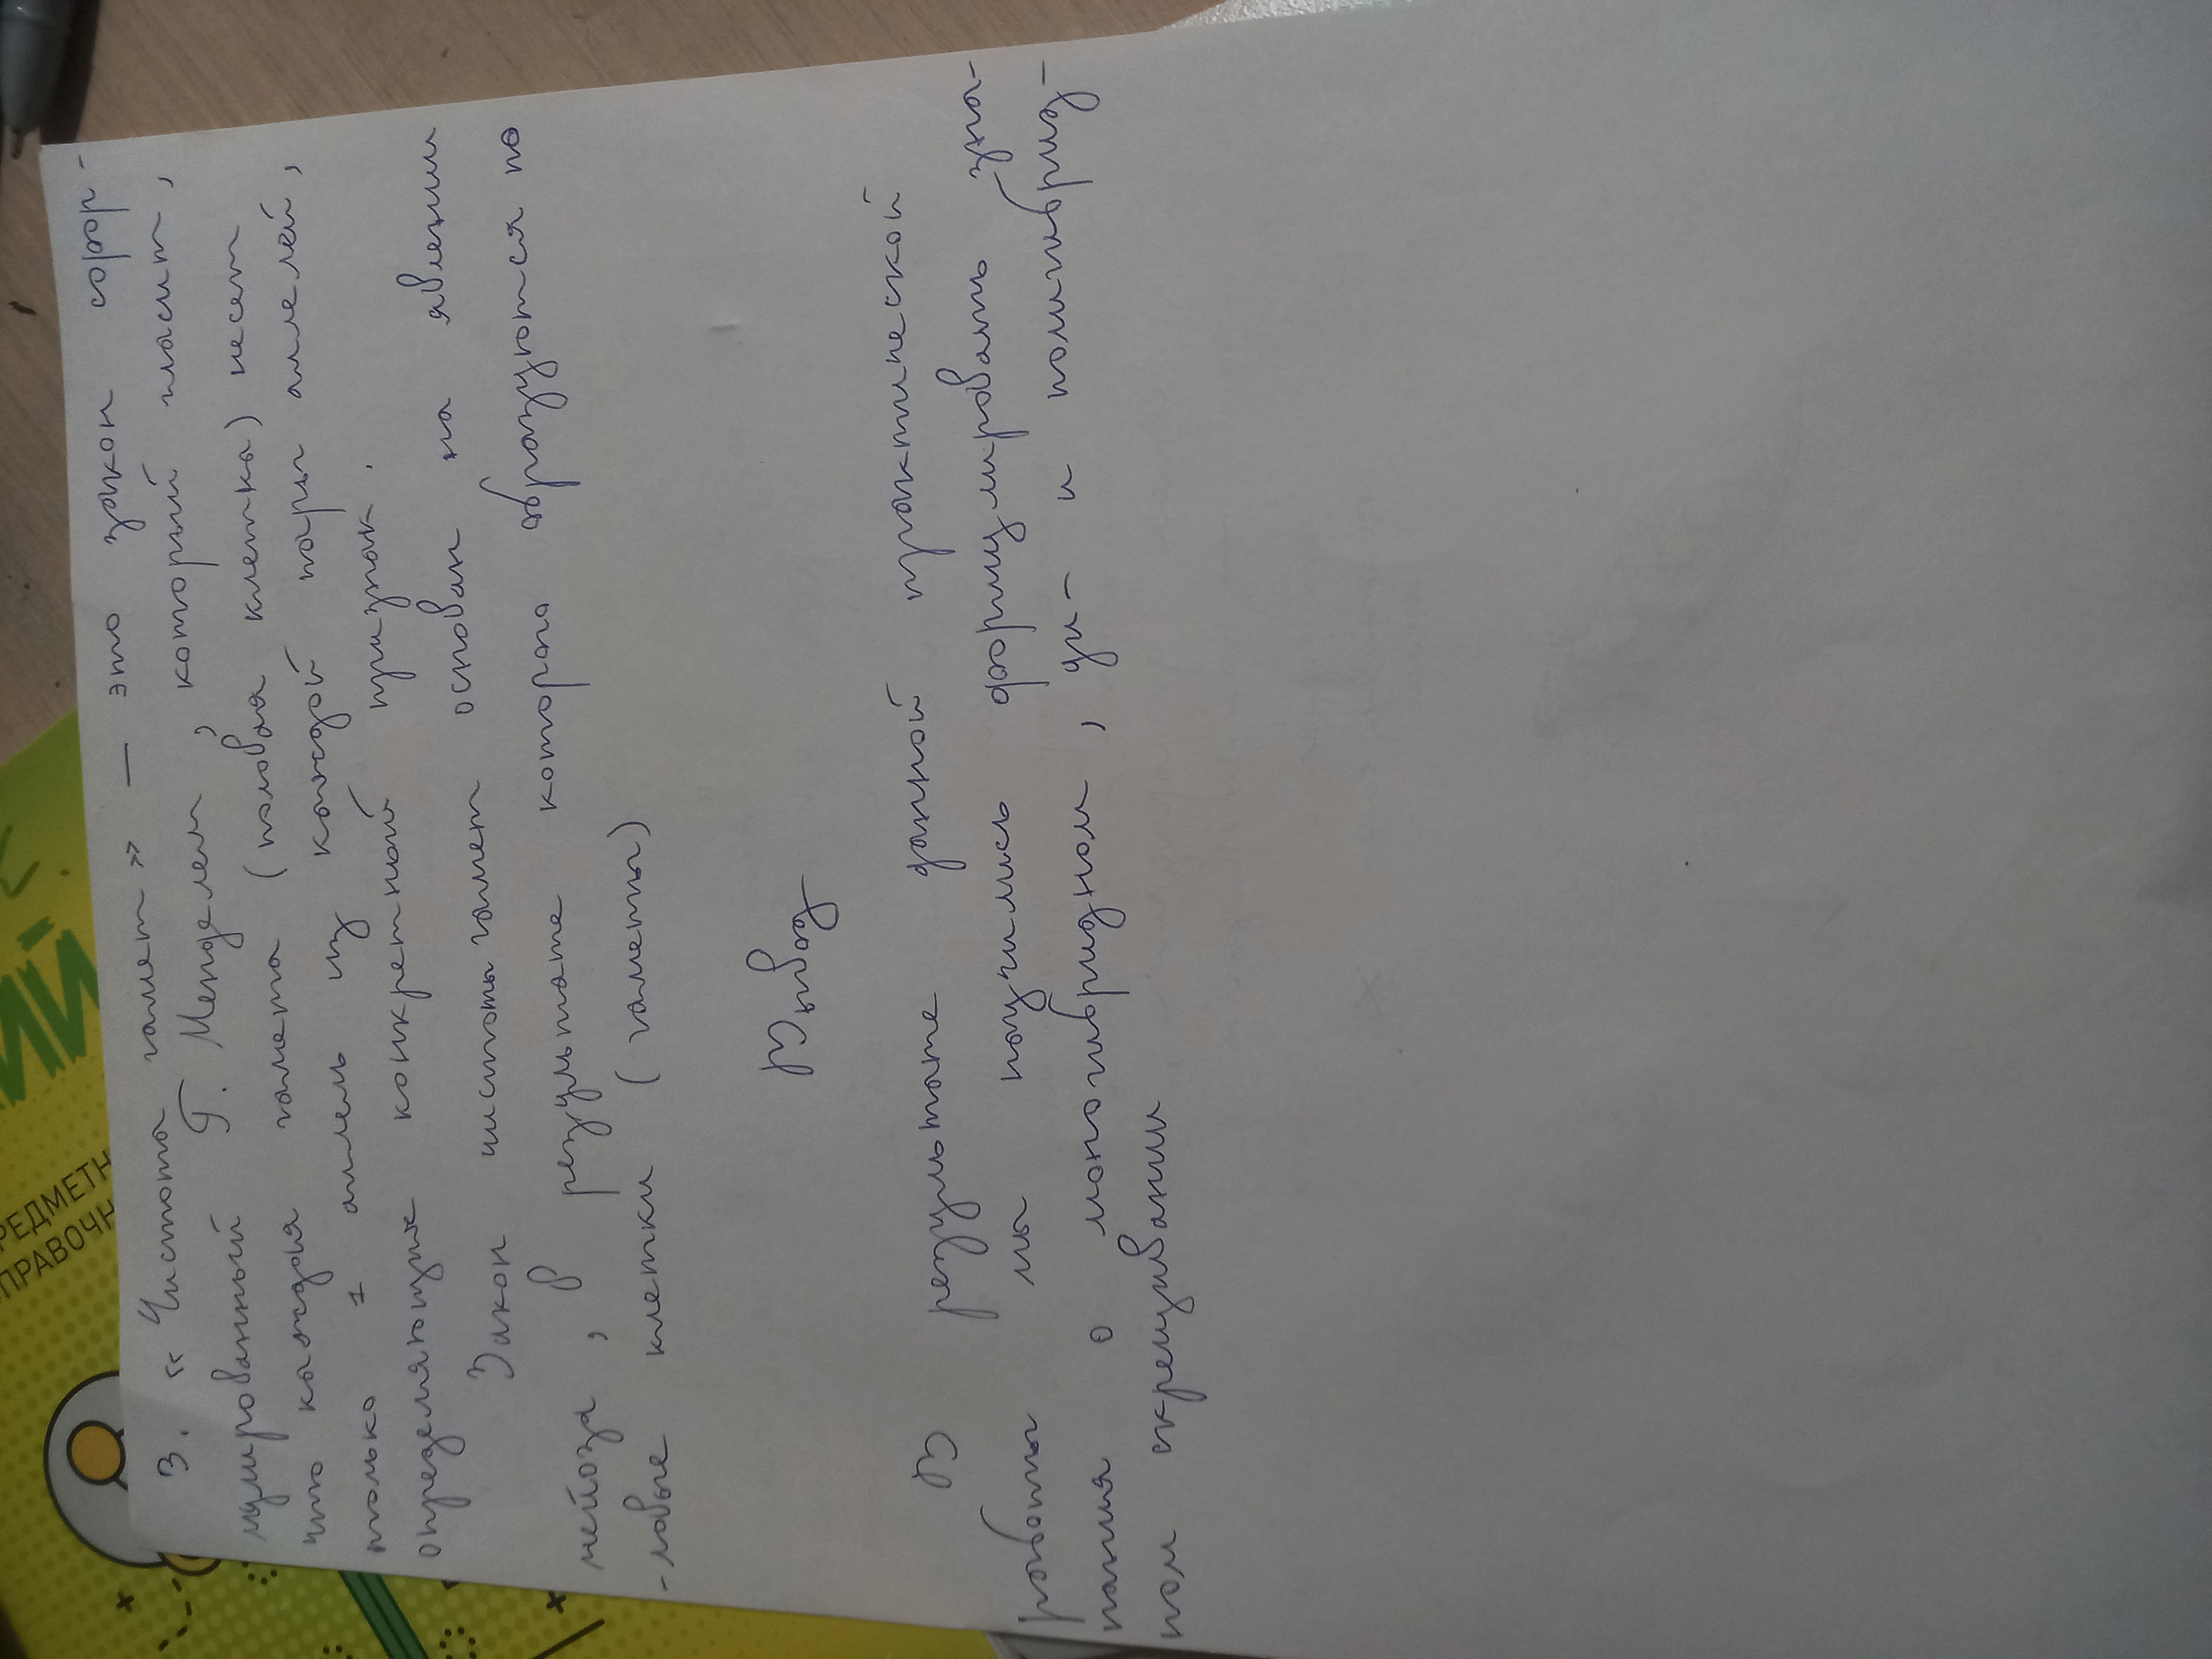 3. «Чистота гамет» — это закон сфор-
мулированный Г. Менделем, который гласит,
что каждая гамета (половая клетка) несет
только 1 аллель из каждой пары аллелей,
определяющие конкретный признак.
Закон чистоты гамет основан на явлении
мейоза, в результате которого образуются по
-ловые клетки (гаметы)
Вывод
В результате данной практической
работы мы научились формулировать зна-
ния о моногибридном, ди- и полигибрид-
ном скрещивании
МИЙ
РЕДМЕТН
ПРАВОЧН